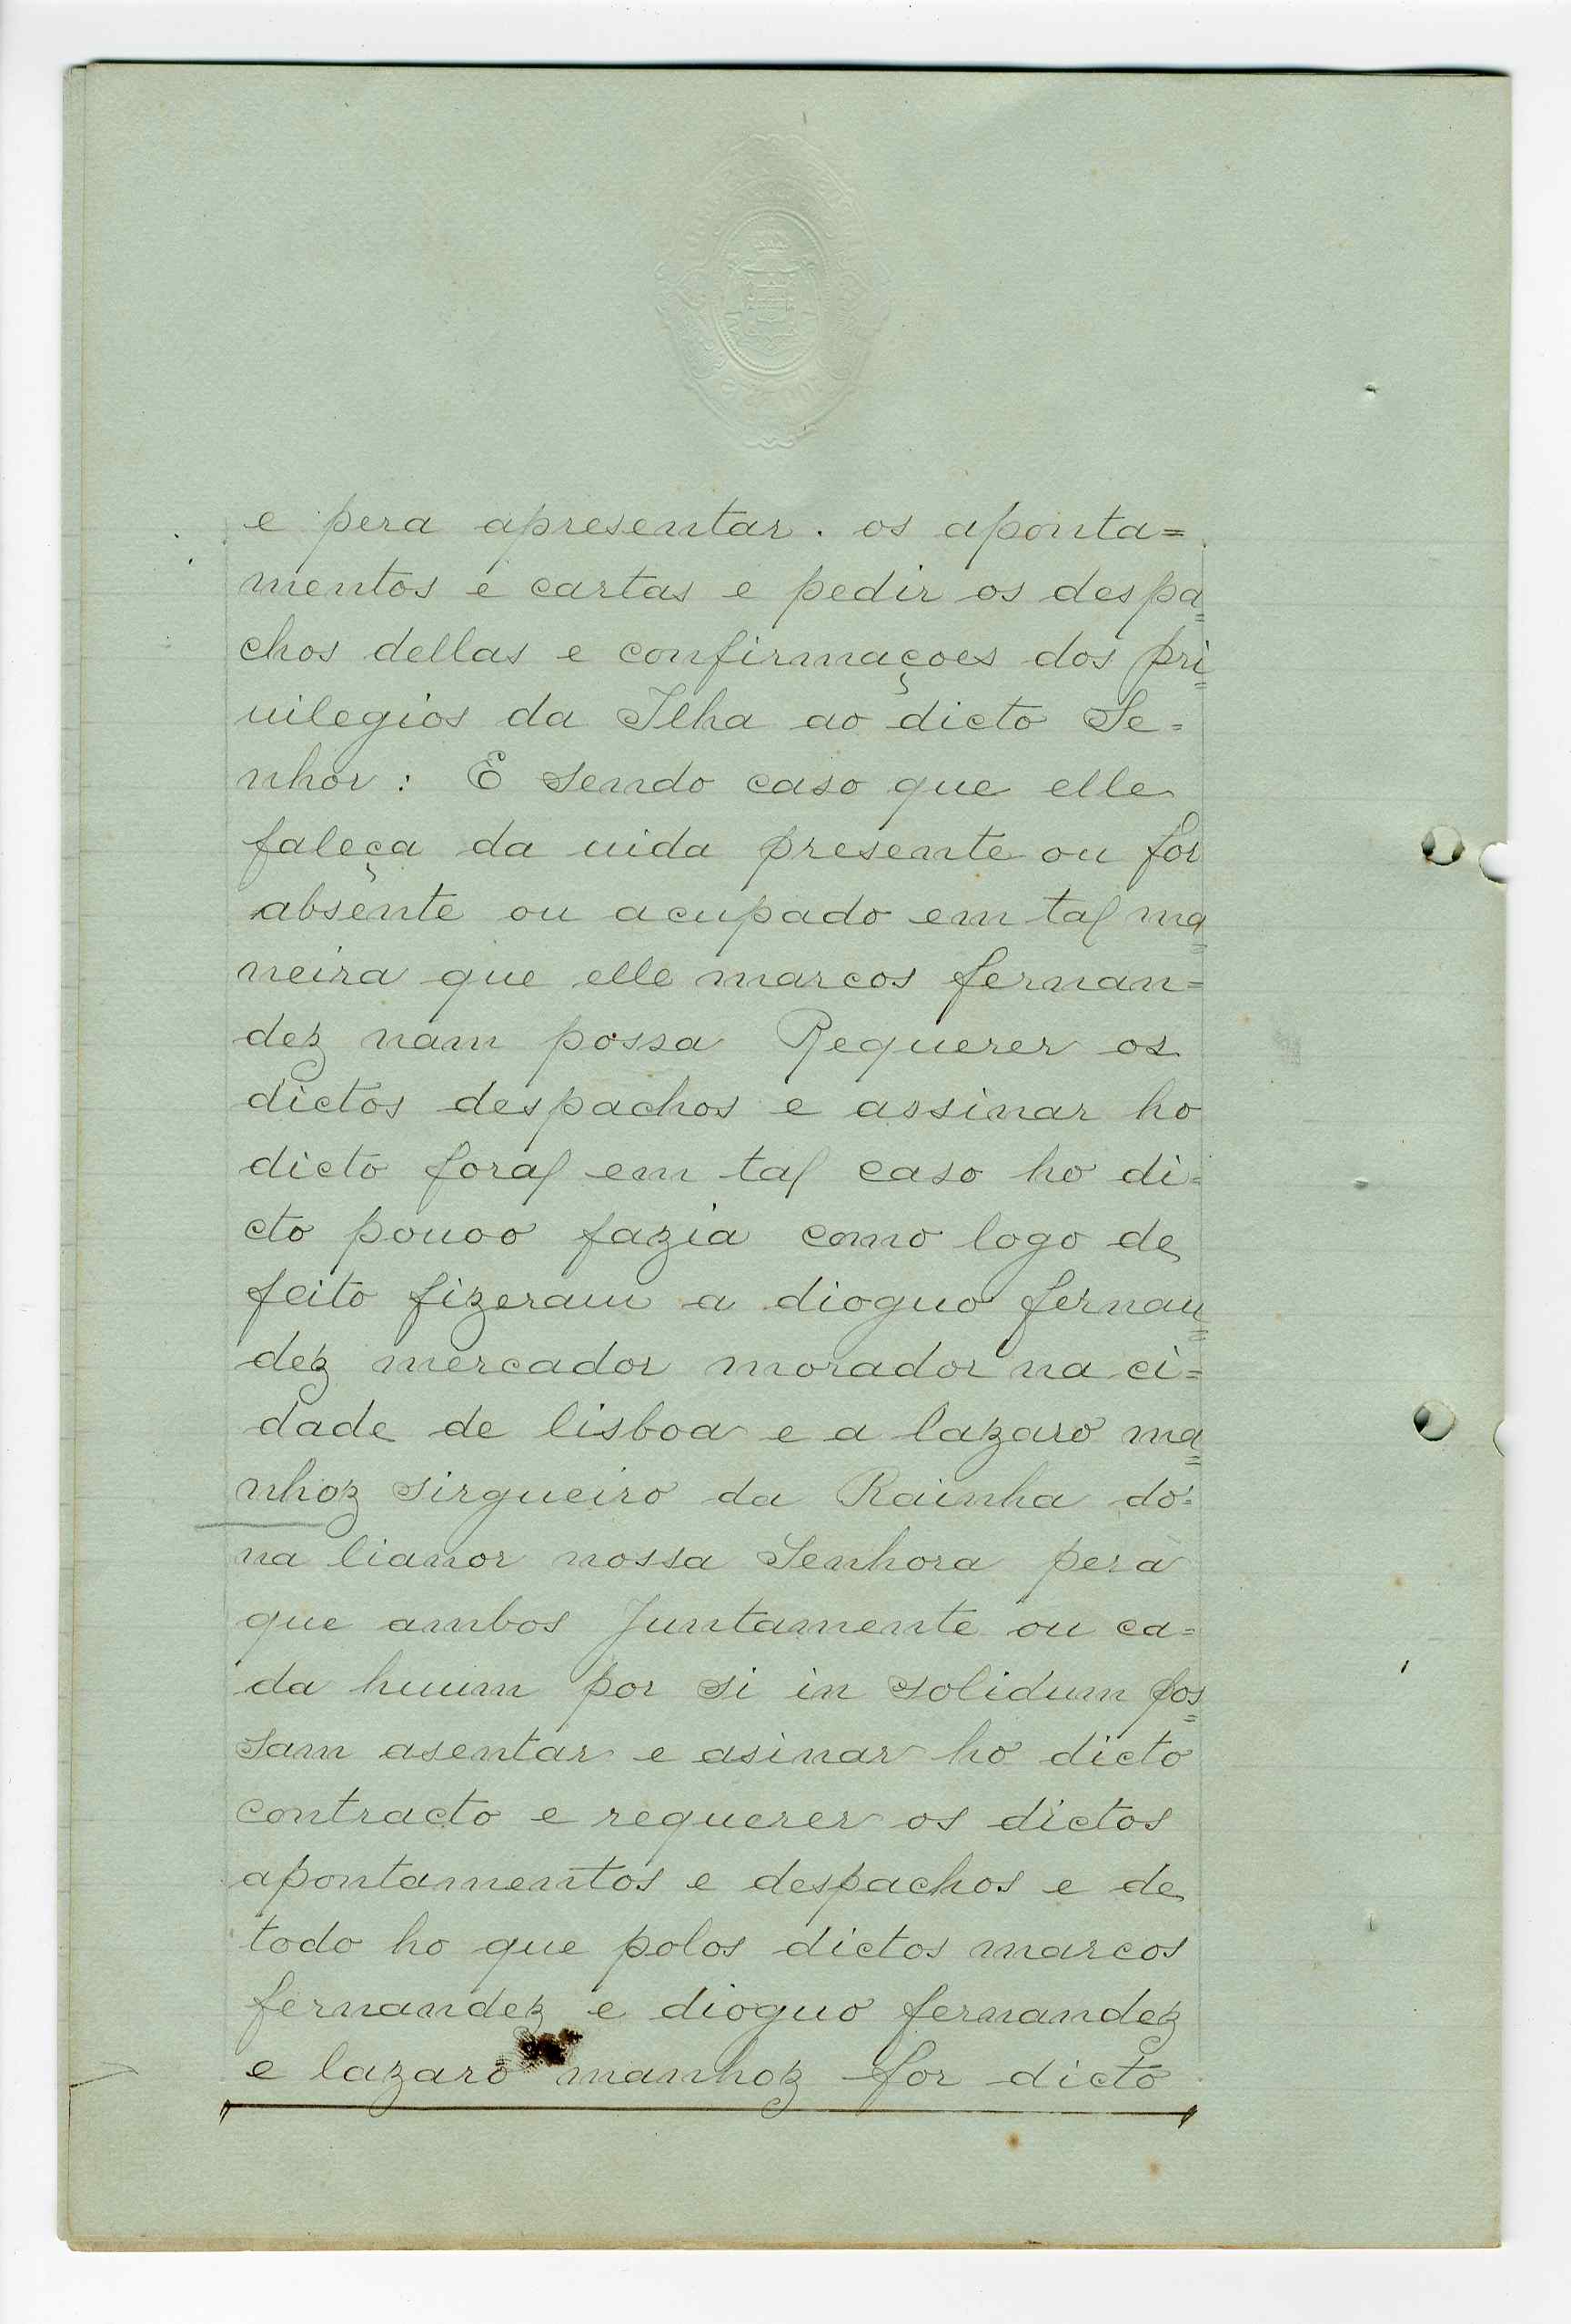 e pera apresentar. os aponta=
mentos e cartas e pedir os despa=
chos dellas e confirmaçoes dos pri=
uilegios da Ilha ao dicto Se=
nhor: E sendo caso que elle
faleça da uida presente ou for
absente ou acupado em tal ma=
neira que elle marcos fernan=
dez nam possa Requerer os
dictos despachos e assinar ho
dicto foral em tal caso ho di=
cto pouoo fazia como logo de
feito fizeram a dioguo fernan=
dez mercador morador na ci=
dade de lisboa e a lazaro ma=
nhoz sirgueiro da Rainha do=
na lianor nossa Senhora pera
que ambos Juntamente ou ca=
da huum por si in solidum pos=
sam asentar e asinar ho dicto
contracto e requerer os dictos
apontamentos e despachos e de
todo ho que polos dictos marcos
fernandez e dioguo fernandez
e lazaro manhoz for dicto